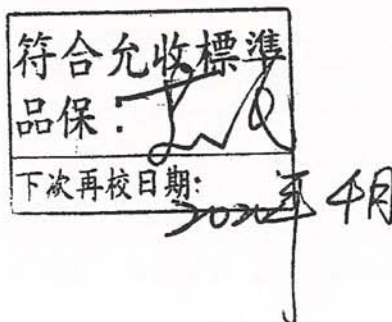 符合允收標準
品保：
下次再校日期:
年4月